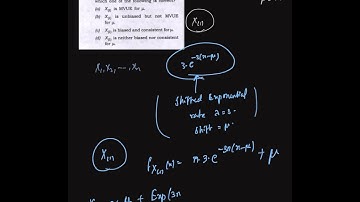 which one of the following is correct?
(a) X(1) is MVUE for μ.
(b) X(1) is unbiased but not MVUE for μ.
(c) X(1) is biased and consistent for μ.
(d) X(1) is neither biased nor consistent for μ.
X(1)
X1, X2, ..., Xn
3·e^-3(x-μ)
Shifted Exponential
rate λ=3.
shift = μ.
X(1)
fX(1)(x) = n·3·e^-3n(x-μ) + μ
μ + Exp(3n